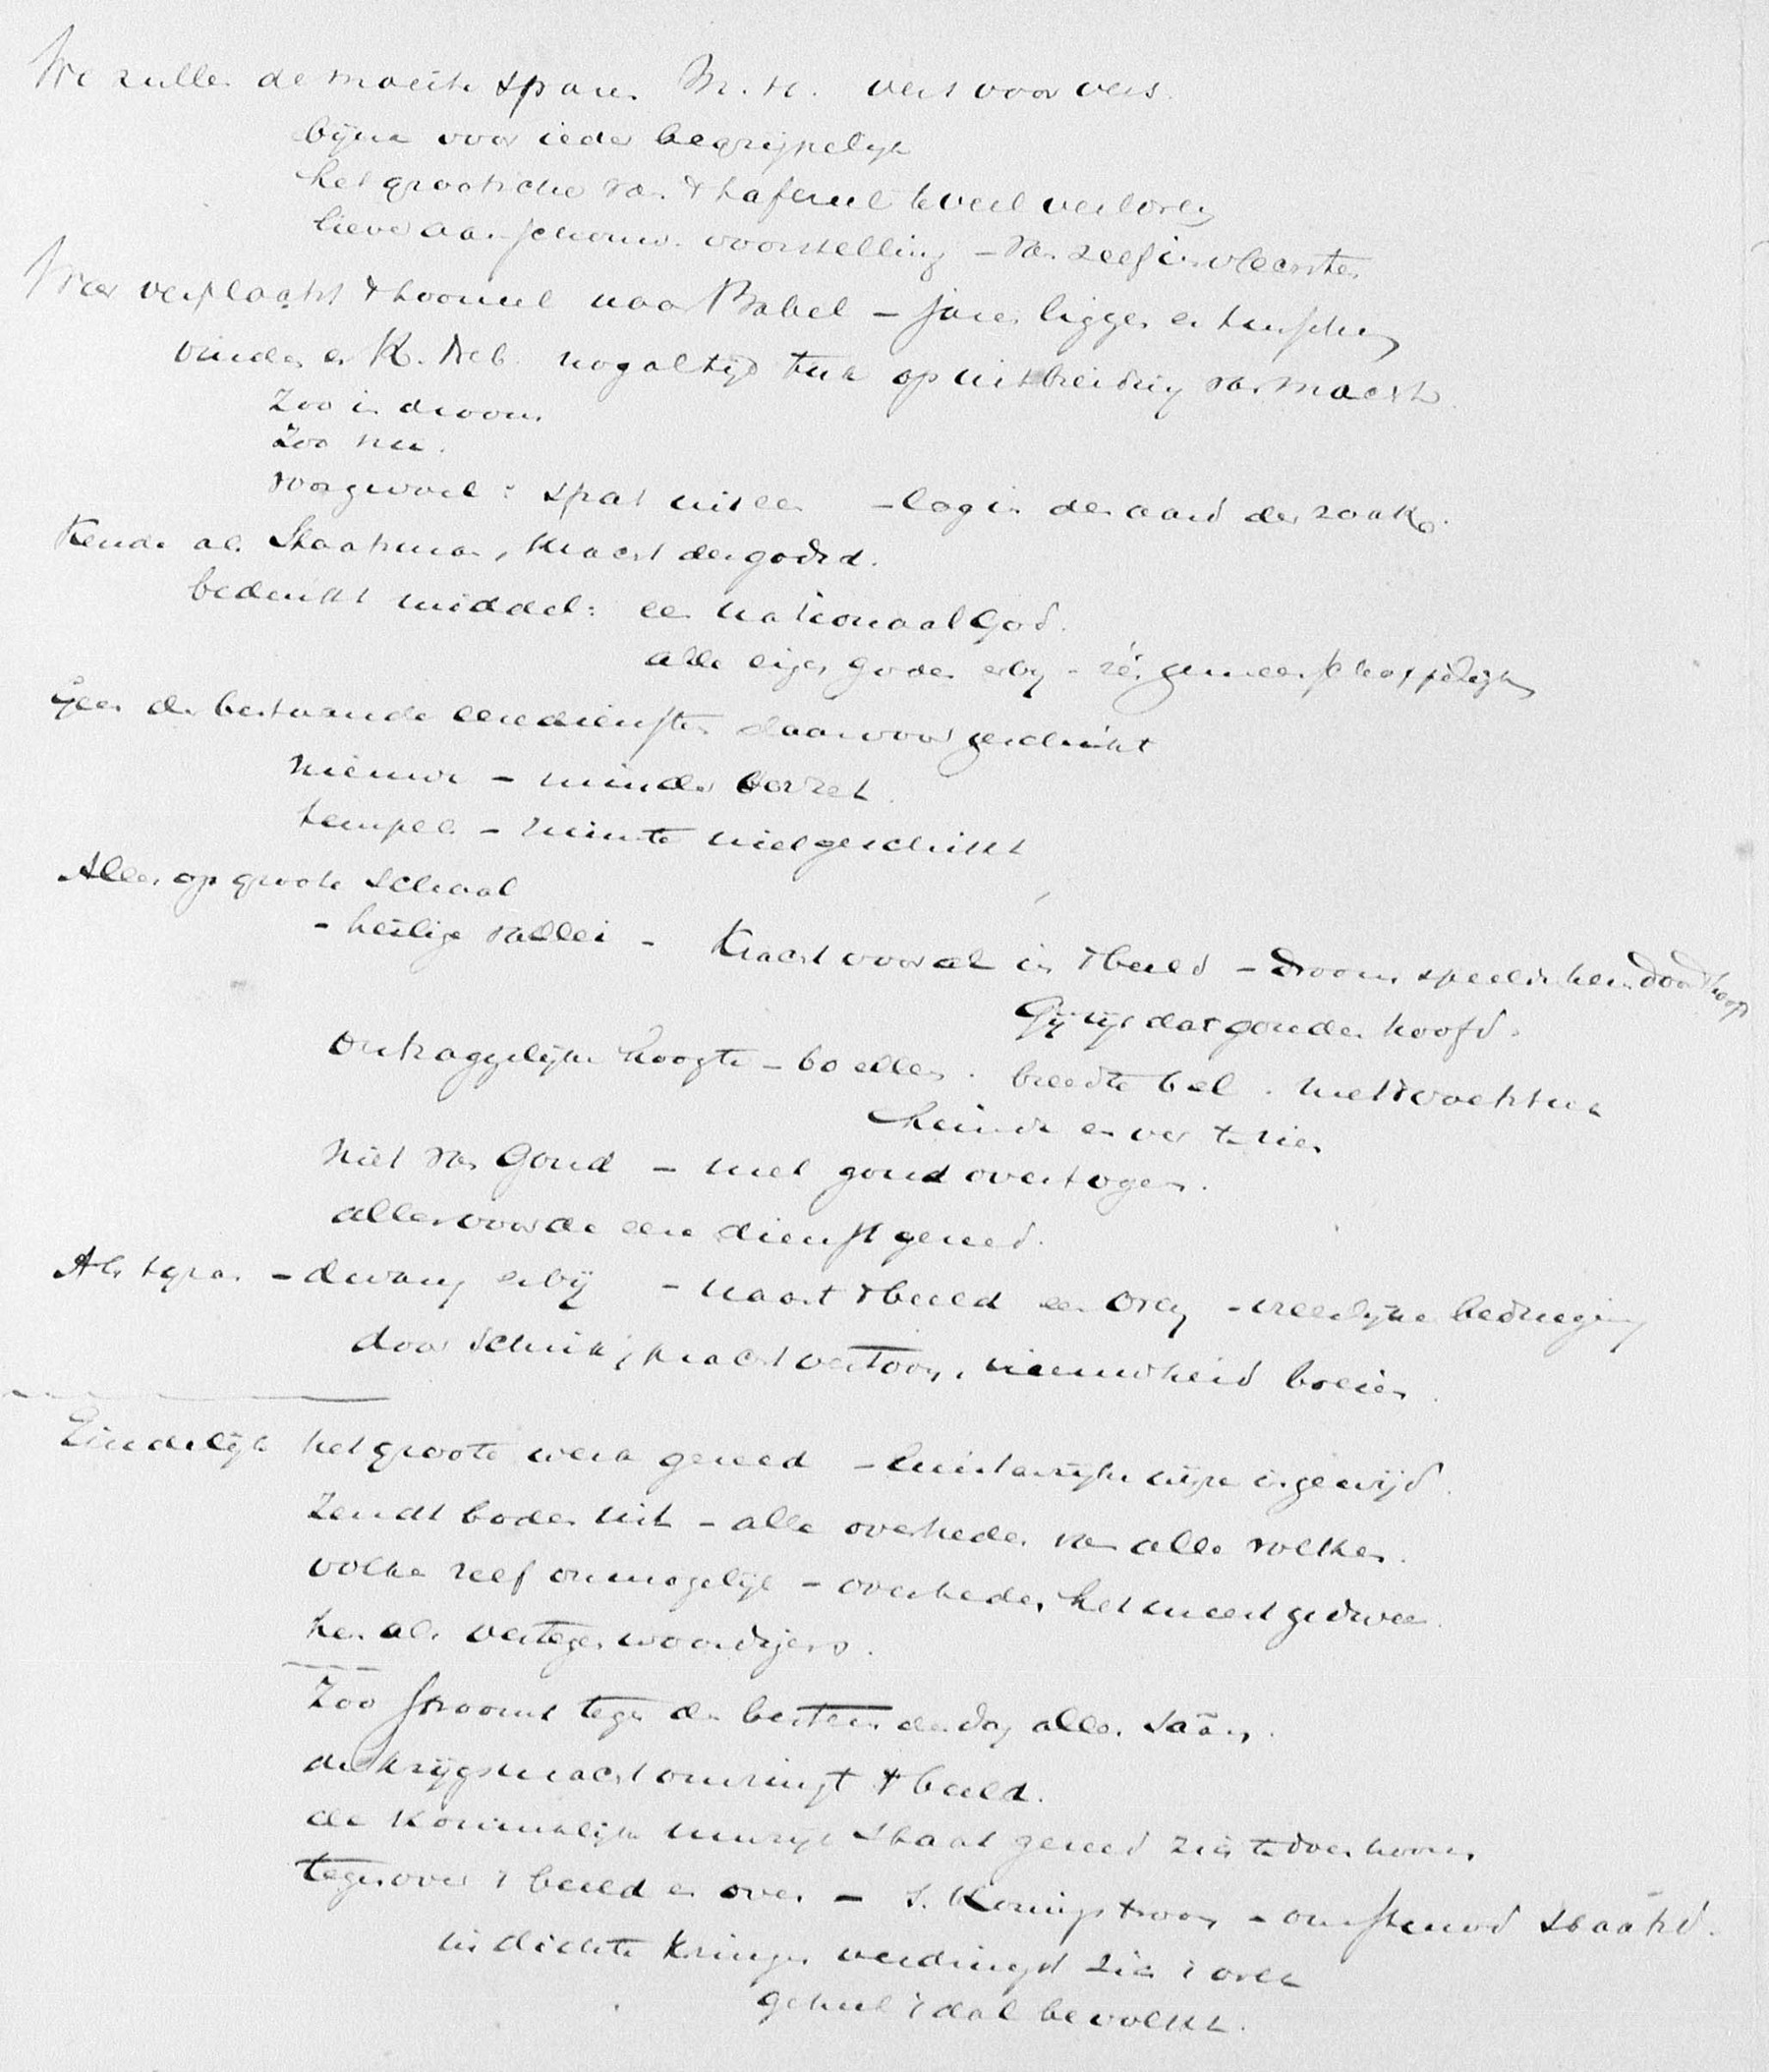 We zullen de moeite sparen M. H. vers voor vers.
bijna voor ieder begrijpelijk
het grootsche van 't tafereel te veel verloren
liever aanschouw. voorstelling – van zelf in
Weer verplaatst 't tooneel naar Babel – jaren liggen er tusschen
vinden er K. Neb. nog altijd tuk op uitbreiding van macht.
Zoo in droom.
Zoo nu.
spat uiteen – lag in den aard der zaak.
Kende als Staatsman, kracht der godsd.
bedenkt middel: een nationaal God.
alle eigen goden erbij – één gemeenschappelijk
Geen der bestaande eerediensten daarvoor geschikt
nieuwe – minder verzet.
tempels – ruimte niet geschikt
Alles op groote schaal
– heilige vallei – Kracht vooral in 't beeld – droom speelde hem door 't hoofd
Gij zijt dat gouden hoofd.
Ontzaggelijke hoogte – 60 ellen. breedte 6 el. met voetstuk
heinde en ver te zien
niet van Goud – met goud overtogen.
alles voor de eeredienst gereed.
Als – dwang erbij – naast 't beeld een oven – vreeselijke bedreiging
door schrik, pracht vertoon, nieuwheid boeien.
Eindelijk het groote werk gereed – luisterrijke wijze ingewijd.
Zendt boden uit – alle overheden van alle volken.
volken zelf onmogelijk – overheden het meest gedwee.
hen als vertegenwoordigers.
Zoo stroomt tegen den bestemden dag alles saam.
de krijgsmacht omringt 't beeld.
de Koninklijke muzijk staat gereed zich te doen hooren
tegenover 't beeld en oven – 's Konings troon – omstuwd
in dichte kringen verdringt zich 't volk
geheel 't dal bevolkt.